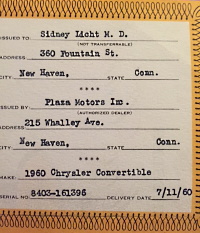 ISSUED TO Sidney Licht M. D.
(NOT TRANSFERRABLE)
ADDRESS 360 Fountain St.
CITY New Haven, STATE Conn.
****
ISSUED BY: Plaza Motors Inc.
(AUTHORIZED DEALER)
ADDRESS 215 Whalley Ave.
CITY New Haven, STATE Conn.
****
MAKE: 1960 Chrysler Convertible
SERIAL NO. 8403-161396 DELIVERY DATE 7/11/60